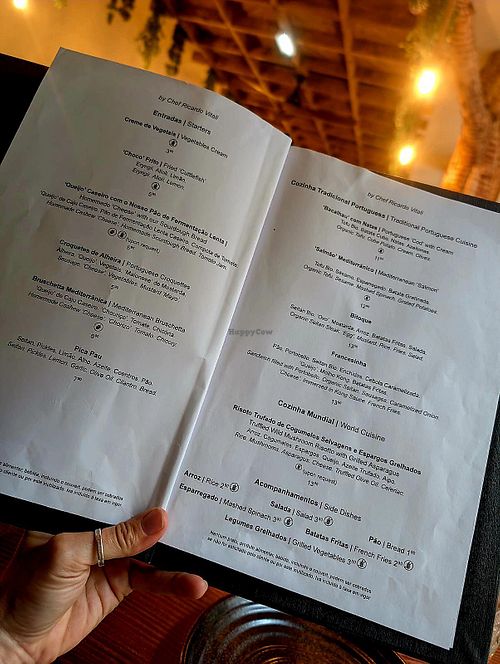 by Chef Ricardo Vitali
Entradas | Starters
Creme de Vegetais | Vegetables Cream
3⁹⁵
'Choco' Frito | Fried 'Cuttlefish'
Eryngii, Alioli, Limão.
Eryngii, Alioli, Lemon.
'Queijo' Caseiro com o Nosso Pão de Fermentação Lenta |
Homemade 'Cheese' with our Sourdough Bread
'Queijo' de Caju Caseiro, Pão de Fermentação Lenta Caseiro, Compota de Tomate.
Homemade Cashew 'Cheese', Homemade Sourdough Bread, Tomato Jam.
(upon request)
Croquetes de Alheira | Portuguese Croquettes
Alheira, 'Queijo' Vegetal, 'Maionese' de Mostarda.
Sausage, 'Cheese', Vegetables, Mustard 'Mayo'.
Bruschetta Mediterrânica | Mediterranean Bruschetta
'Queijo' de Caju Caseiro, 'Chouriço', Tomate, Chicória.
Homemade Cashew 'Cheese', 'Chorizo', Tomato, Chicory.
Pica Pau
Seitan, Pickles, Limão, Alho, Azeite, Coentros, Pão.
Seitan, Pickles, Lemon, Garlic, Olive Oil, Cilantro, Bread.
by Chef Ricardo Vitali
Cozinha Tradicional Portuguesa | Traditional Portuguese Cuisine
'Bacalhau' com Natas | Portuguese 'Cod' with Cream
Tofu Bio, Batata Cubo, Natas, Azeitonas.
Organic Tofu, Cube Potato, Cream, Olives.
'Salmão' Mediterrânico | Mediterranean 'Salmon'
Tofu Bio, Sésamo, Esparregado, Batata Grelhada.
Organic Tofu, Sesame, Mashed Spinach, Grilled Potatoes.
Bitoque
Seitan Bio, 'Ovo', Mostarda, Arroz, Batatas Fritas, Salada.
Organic Seitan Steak, 'Egg', Mustard, Rice, Fries, Salad.
Francesinha
Pão, Portobello, Seitan Bio, Enchidos, Cebola Caramelizada,
'Queijo', Molho Kong, Batatas Fritas.
Sandwich filled with Portobello, Organic Seitan, Sausages, Caramelized Onion,
'Cheese', Immersed in Kong Sauce, French Fries.
Cozinha Mundial | World Cuisine
Risoto Trufado de Cogumelos Selvagens e Espargos Grelhados
Truffled Wild Mushroom Risotto with Grilled Asparagus
Arroz, Cogumelos, Espargos, Queijo, Azeite Trufado, Aipo.
Rice, Mushrooms, Asparagus, Cheese, Truffled Olive Oil, Celeriac.
(upon request)
Acompanhamentos | Side Dishes
Arroz | Rice 2⁵⁰
Salada | Salad 3⁵⁰
Pão | Bread 1⁹⁵
Esparregado | Mashed Spinach 3⁵⁰
Batatas Fritas | French Fries 2⁵⁰
Legumes Grelhados | Grilled Vegetables 3⁵⁰
Nenhum prato, produto alimentar, bebida, incluindo o couvert, podem ser cobrados
se não for solicitado pelo cliente ou por este inutilizado. Iva incluído à taxa em vigor.
HappyCow